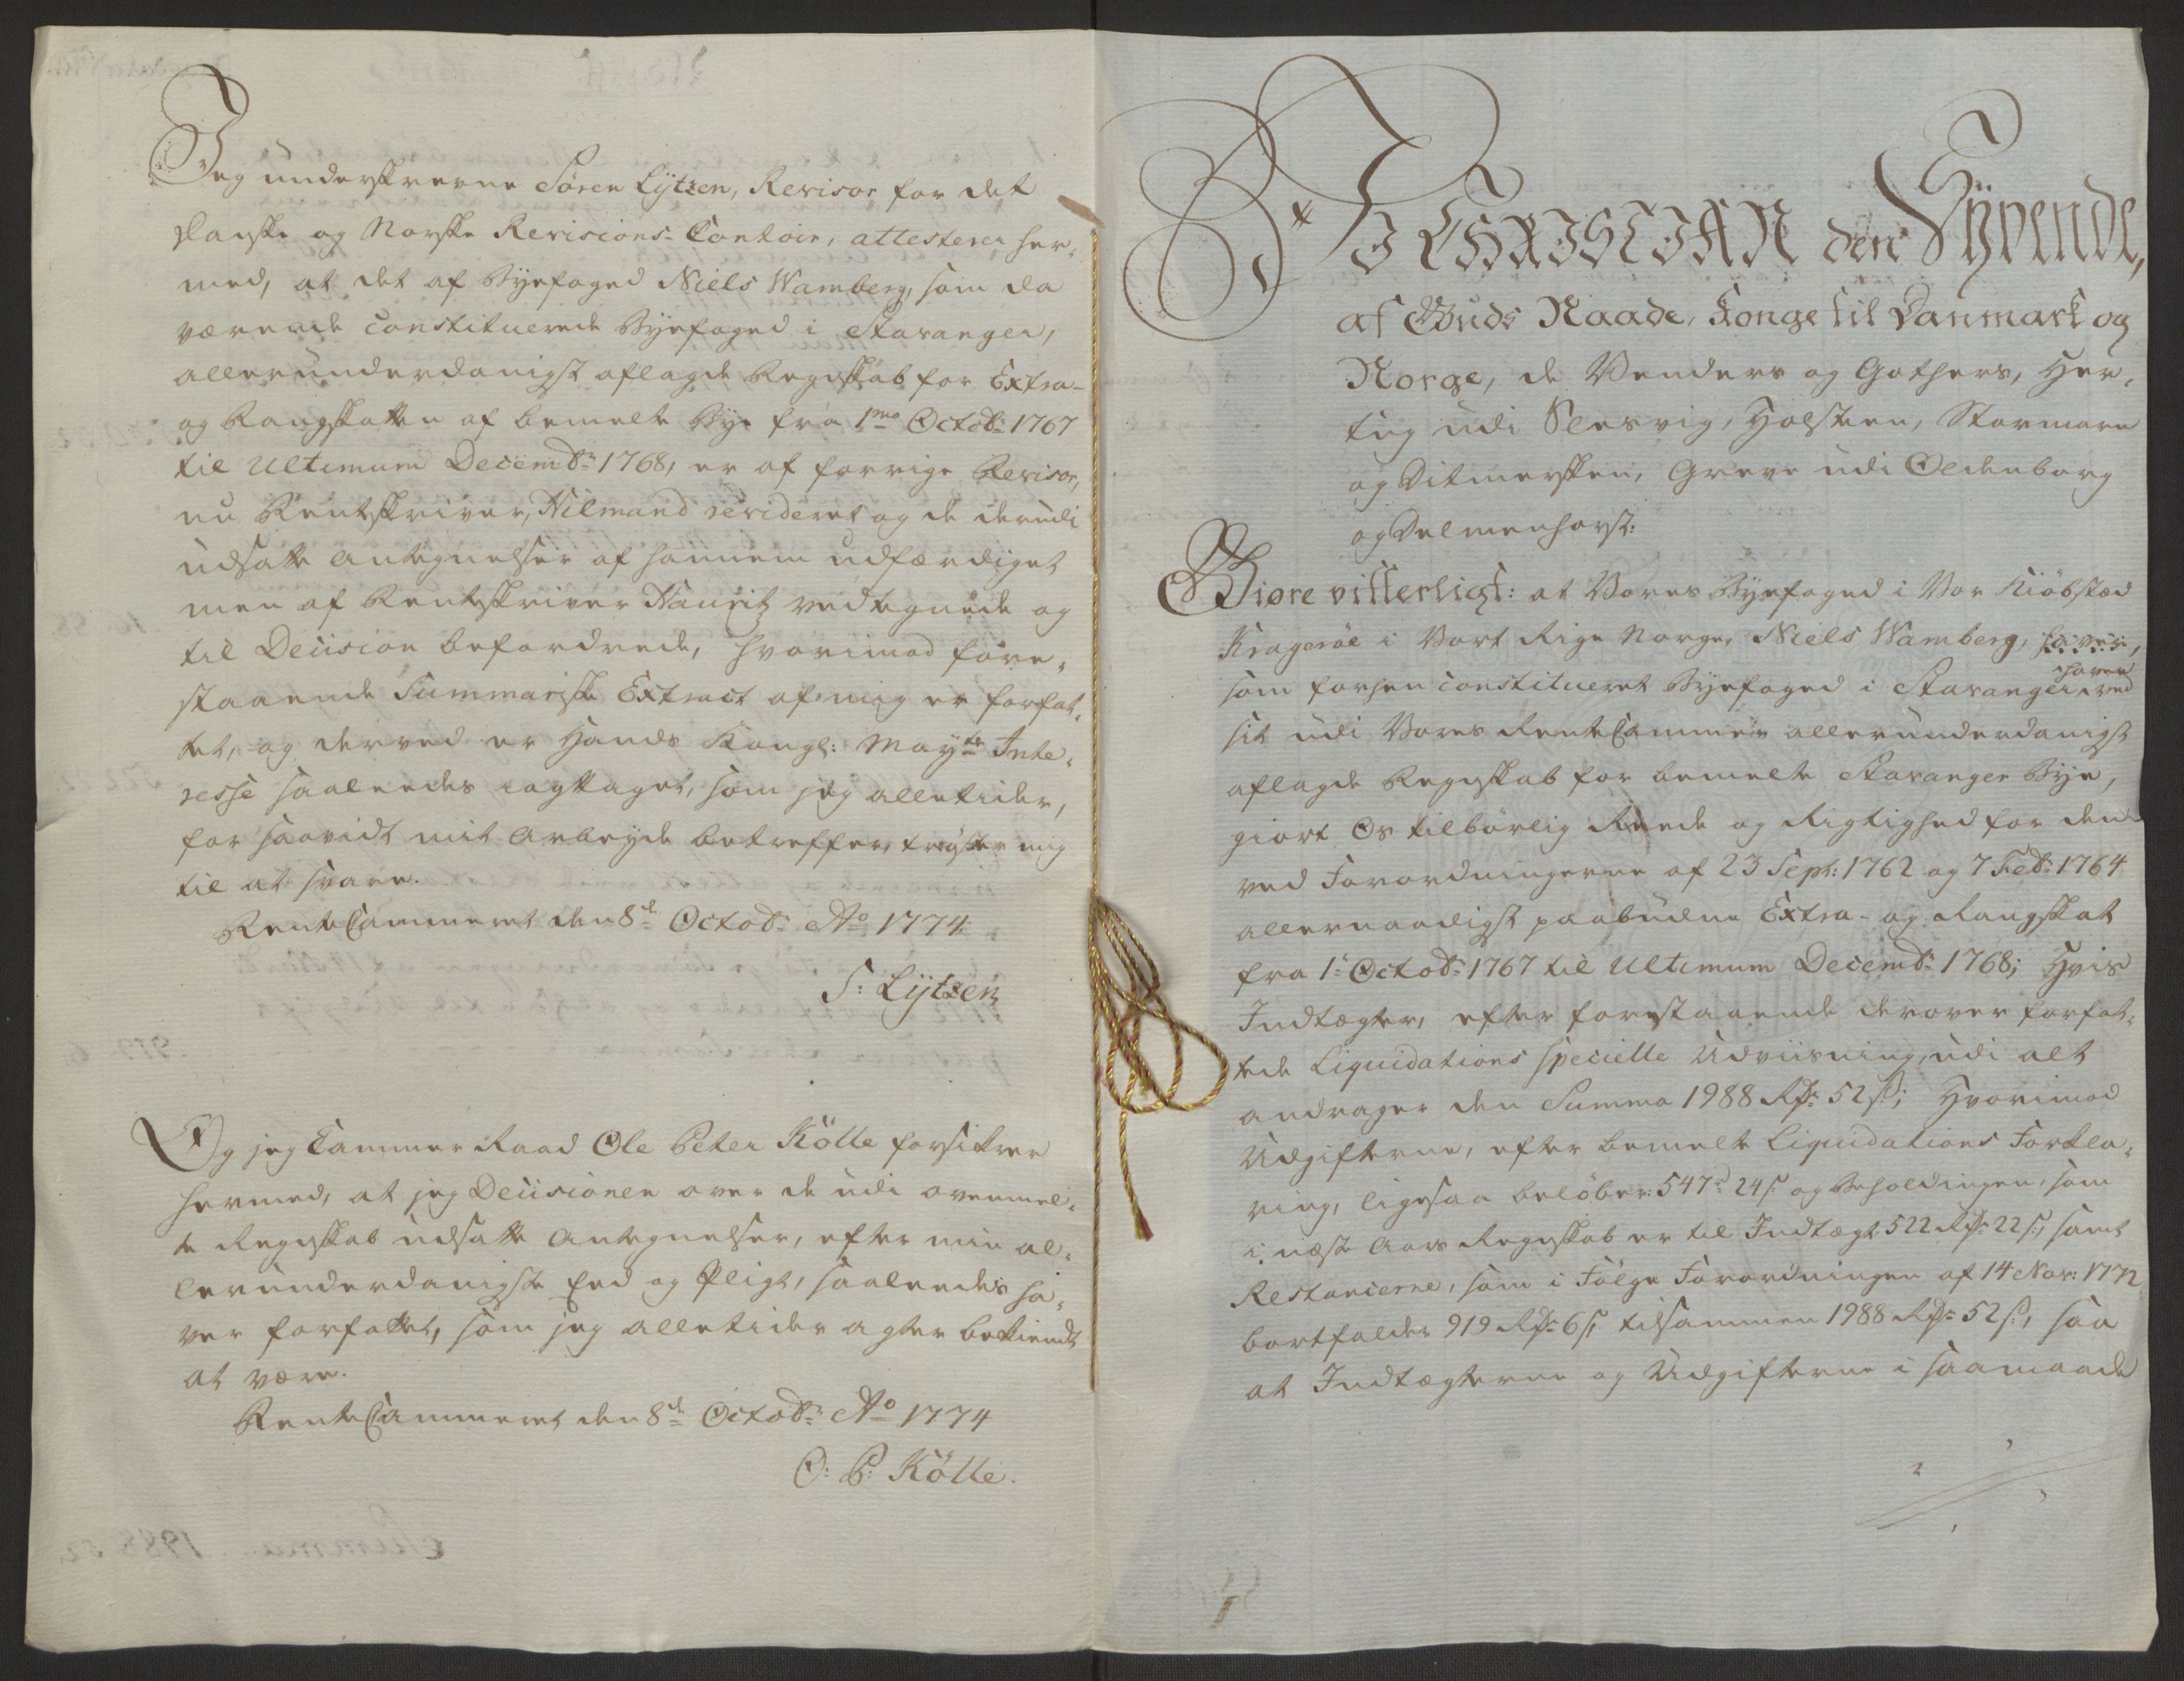 Jeg underskrevne Sören Lÿtzen, Revisor for det
Danske og Norske Revisions-Contoir, attesterer her-
med, at det af Byefoged Niels Wamberg, som da
værende constitueret Byefoged i Stavanger,
allerunderdanigst aflagde Regnskab for Extra-
og Rangskatten af bemelte Bye fra 1mo Octobr: 1767
til Ultimum Decembr: 1768, er af forrige Revisor,
nu Rentskriver, Hilmand revideret og de derudi
udsatte Antegnelser af hannem udfærdiget
men af Rentskriver Hauritz vedtegnede og
til Decision befordrede, hvorimod fore-
staaende Summariske Extract af mig er forfat-
tet, og derved er Hands Kongl: Mayts Inte-
resse saaledes iagttaget, som jeg alletider,
for saavidt mit Arbeyde betreffer, trøster mig
til at svare.
RenteCammeret den 8de Octobr: Ao 1774
S: Lÿtzen
Og jeg Cammer Raad Ole Peter Kölle forsikrer
hermed, at jeg Decisionen over de udi ovenmel-
te Regnskab udsatte Antegnelser, efter min al-
lerunderdanigste Eed og Pligt, saaledes ha-
ver forfattet, som jeg alletider agter bekiendt
at være.
RenteCammeret den 8de Octobr: Ao 1774
O: P: Kölle.
Summa 1988 52
Vi CHRISTIAN den Syvende,
af Guds Naade, Konge til Danmark og
Norge, de Venders og Gothers, Her-
tug udi Slesvig, Holsteen, Stormarn
og Ditmersken, Greve udi Oldenborg
og Delmenhorst:
Giøre vitterligt: at Vores Byefoged i Vor Kiöbsted
Kragerøe i Vort Rige Norge, Niels Wamberg, haver,
som forhen constitueret Byefoged i Stavanger haver ved
sit udi Vores RenteCammer allerunderdanigst
aflagde Regnskab for bemelte Stavanger Bye,
giort Os tilbørlig Reede og Rigtighed for den
ved Forordningerne af 23 Sept: 1762 og 7 Febr: 1764
allernaadigst paabudne Extra- og Rangskat
fra 1te Octobr: 1767 til Ultimum Decembr: 1768; Hvis
Indtægter, efter forestaaende derover forfat-
tede Liquidations specielle Udviisning, udi alt
andrager den Summa 1988 Rdr 52 s; Hvorimod
Udgifterne, efter bemelte Liquidations Forkla-
ring, ligesaa beløber: 547 rd 24 s og Beholdningen, som
i næste Aars Regnskab er til Indtægt 522 Rdr 22 s, samt
Restancerne, som i Følge Forordningen af 14 Nov: 1772
bortfalder 919 Rdr 6 s, tilsammen 1988 Rdr 52 s, saa
at Indtægterne og Udgifterne i saamaade